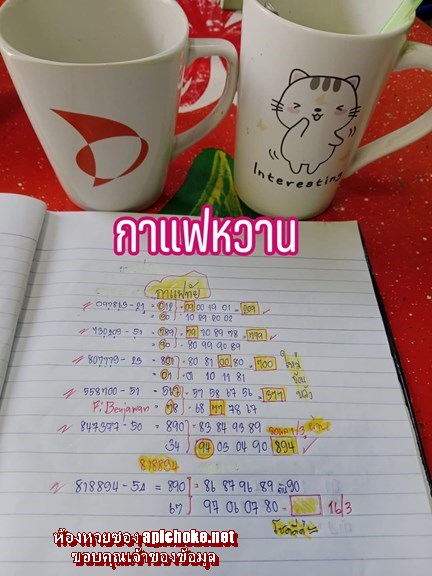 Interesting
กาแฟหวาน
กาแฟทัย
097863-21 = 012 - 09 00 19 01 = 209
90 - 10 29 20 02
730209-51 = 789 - 79 10 89 78 = 779
90 - 80 99 90 89
807779-23 = 801 - 80 81 00 80 = 700
01 10 11 81
558700-51 = 567 - 57 58 67 56 = 577
Fi Benjawan = 78 - 68 77 78 67
847377-50 = 890 83 84 93 89
34 94 03 04 90 894
818894
818894-54 = 890 86 87 96 89 90
67 97 06 07 80 - 16/3
โชคดีค่ะ
ห้องหวยซอง apichoke.net
ขอบคุณเจ้าของข้อมูล